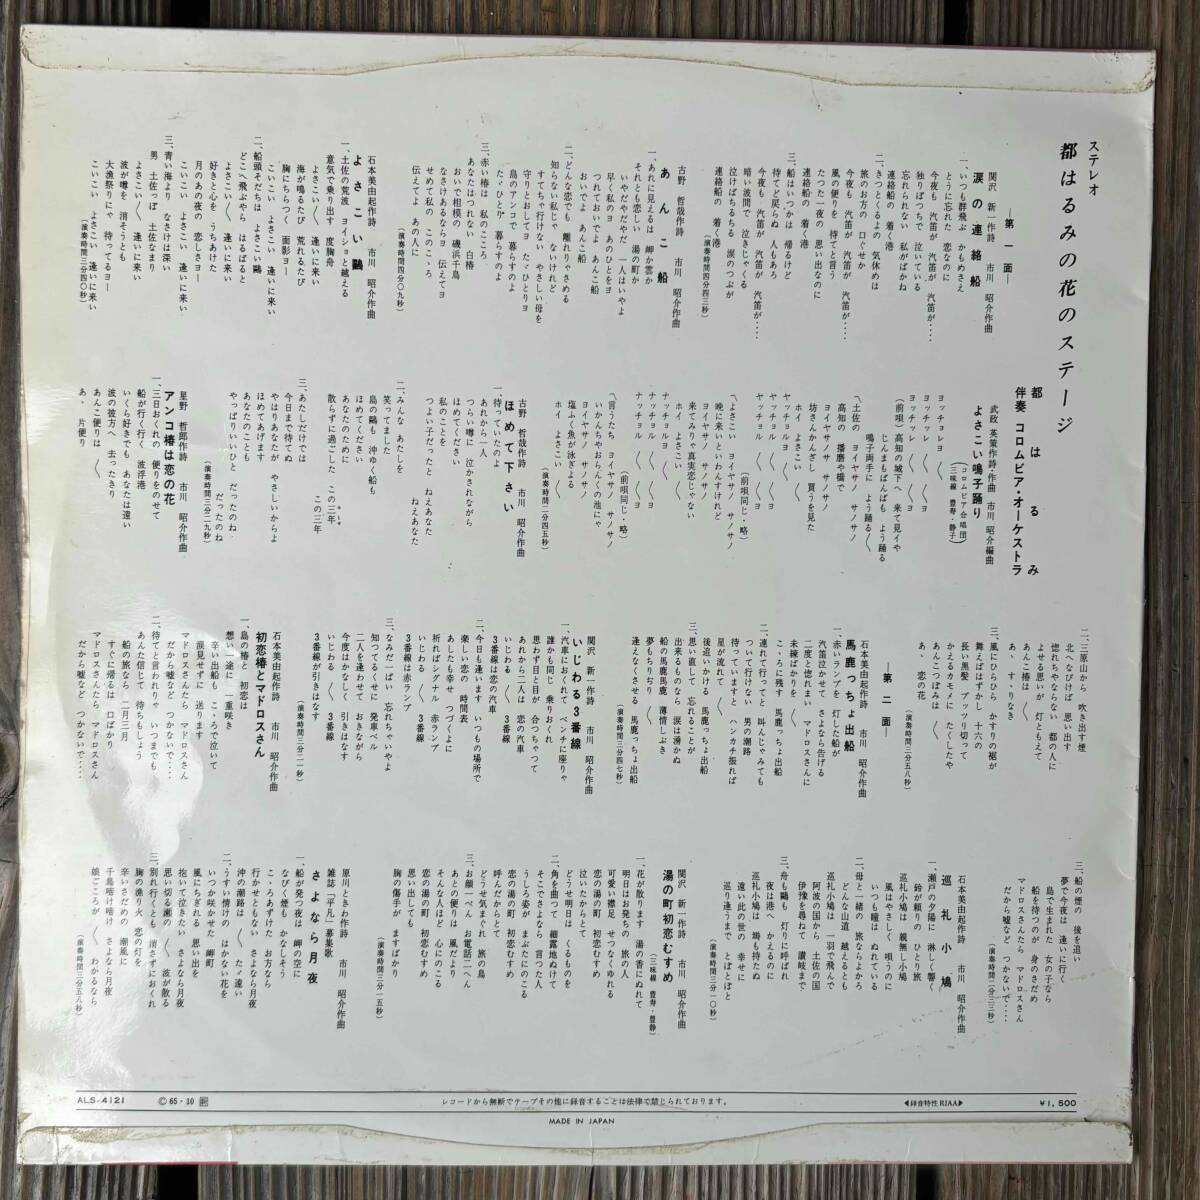 ステレオ
都はるみの花のステージ
都はるみ
伴奏 コロムビア・オーケストラ
―第一面―
涙の連絡船
関沢 新一作詩 市川 昭介作曲
一、いつも群飛ぶ かもめさえ
とうに忘れた 恋なのに
今夜も 汽笛が 汽笛が 汽笛が‥‥
独りぼっちで 泣いている
忘れられない 私がばかね
連絡船の 着く港
二、きっとくるよの 気休めは
旅のお方の 口ぐせか
今夜も 汽笛が 汽笛が 汽笛が‥‥
風の便りを 待てと言う
たった一夜の 思い出なのに
連絡船の 着く港
三、船はいつかは 帰るけど
待てど戻らぬ 人もあろ
今夜も 汽笛が 汽笛が 汽笛が‥‥
暗い波間で 泣きじゃくる
泣けばちるちる 涙のつぶが
連絡船の 着く港
(演奏時間四分四三秒)
あんこ船
古野 哲哉作詩 市川 昭介作曲
一、あれに見えるは 岬か雲か
それとも恋しい 湯の町か
いやだやだやだ 一人はいやよ
早く行きたい あの人の
今の私の あのひとをヨ
つれておいでよ あんこ船
おいでよ あんこ船
二、どんな恋でも 離れりゃさめる
知らない私じゃ ないけれど
すてちゃ行けない やさしい母を
守りとおしてヨ たゞひとりヨ
島のアンコで 暮らすのよ
たゞひとり 暮らすのよ
三、赤い椿は 私のこころ
あなたはつれない 白椿
おいで相模の 磯浜千鳥
なさけあるなら 伝えてヨ
せめて私の このこゝろ
伝えてよ あの人に
(演奏時間四分〇九秒)
よさこい鷗
石本美由起作詩 市川 昭介作曲
一、土佐の荒波 ヨイショと越える
意気で乗り出す 度胸舟
よさこい/\ 逢いに来い
海が鳴るたび 荒れるたび
胸にちらつく 面影ヨー
こいこい よさこい 逢いに来い
二、船頭そだちは よさこい鷗
どこへ飛ぶやら はるばると
よさこい/\ 逢いに来い
好きと心を うちあけた
月のあの夜の 恋しさヨー
こいこい よさこい 逢いに来い
三、青い海より なさけは深い
男 土佐っぽ 土佐なまり
よさこい/\ 逢いに来い
波が噂を 消そうとも
大漁祭りにゃ 待ってるヨー
こいこい よさこい 逢いに来い
(演奏時間三分四〇秒)
よさこい鳴子踊り
武政 英策作詩・作曲 市川 昭介編曲
(コロムビア合唱団)
(三味線 豊寿・静子)
ヨッチョレヨ ヨッチョレヨ
ヨッチョレ /\ /\ヨ
ヨッチョレ /\ /\ヨ
(前唄)高知の城下へ 来て見イや
じんまもばんばも よう踊る
鳴子両手に よう踊る/\
一、土佐の ヨイヤサノ サノサノ
高知の 播磨や橋で
ヨイヤサノ サノサノ
坊さんかんざし 買うを見た
ホイ よさこい /\
ヤッチョル /\ /\ヨ
ヤッチョル /\ /\
(前唄同じ・略)
よさこい ヨイヤサノ サノサノ
晩に来いといわんすけれど
ヨイヤサノ サノサノ
来てみりゃ真実恋じゃない
ホイ よさこい
ナッチョル /\ /\ヨ
ナッチョル /\ /\
(前唄同じ・略)
言うたち ヨイヤサノ サノサノ
いかんちやおらんくの池にゃ
ヨイヤサノ サノサノ
塩ふく魚が泳ぎよる
ホイ よさこい /\
(演奏時間二分四五秒)
ほめて下さい
古野 哲哉作詩 市川 昭介作曲
一、待っていたのよ
あれから一人
つらい噂に 泣かされながら
ほめてください
つよい子だったと ねえあなた
ねえあなた
二、みんな あたしを
笑ってました
島の鷗も 沖ゆく船も
ほめてください
あなたのために
散らずに過ごした この三年
この三年
三、あたしだけでは
今日まで待てぬ
やはりあなたが やさしいからよ
ほめてあげます
あなたのことも
やっぱりいいひと だったのね
だったのね
(演奏時間三分二九秒)
アンコ椿は恋の花
星野 哲郎作詩 市川 昭介作曲
一、三日おくれの 便りをのせて
船が行く行く 波浮港
いくら好きでも あなたは遠い
波の彼方へ 去ったきり
あんこ便りは /\
あゝ 片便り
二、三原山から 吹き出す煙
北へなびけば 思い出す
惚れちゃならない 都の人に
よせる思いが 灯ともえて
あんこつばきは /\
あゝ すゝりなき
三、風にひらひら かすりの裾が
舞えばはずかし 十六の
長い黒髪 プッツリ切って
かえるカモメに たくしたや
あんこつぼみは /\
あゝ 恋の花
(演奏時間三分五八秒)
―第二面―
馬鹿っちょ出船
石本美由起作詩 市川 昭介作曲
一、赤いランプを 灯した船が
汽笛泣かせて さよなら告げる
二度と惚れまい マドロスさんに
未練ばかりを /\
こゝろに残す 馬鹿っちょ出船
二、連れて行ってと 叫んじゃみても
ついて行けない 男の潮路
待っていますと ハンカチ振れば
星が流れて /\
逢えなくさせる 馬鹿っちょ出船
三、思い直して ごらんとさとす
後追いかける 馬鹿っちょ出船
出来るものなら 涙は湧かぬ
船の馬鹿馬鹿 薄情しぶき
夢もちぎり /\
(演奏時間三分四七秒)
いじわる3番線
関沢 新一作詩 市川 昭介作曲
一、汽車におくれて ベンチに座りゃ
誰かも同じ 乗りおくれ
思わず目と目が 合っちゃって
あれから二人は 恋の汽車
いじわる /\ 3番線
3番線は恋の汽車
二、今日も逢います いつもの場所で
楽しい恋の 時間表
あしたも幸せ つづくよに
祈ればシグナル 赤ランプ
いじわる /\ 3番線
3番線は赤ランプ
三、なみだ一ぱい 忘れちゃいやよ
知っててるくせに 発車ベル
二人を逢わせて おきながら
今度はなんだか 引きはなす
いじわる /\ 3番線
3番線が引きはなす
(演奏時間三分二一秒)
初恋椿とマドロスさん
石本美由起作詩 市川 昭介作曲
一、島の椿と 初恋は
想い一途に 一重咲き
辛い出船も こゝろで泣いて
涙見せずに 送ります
マドロスさんたら マドロスさん
だから嘘など つかないで‥‥
二、待てと言われりゃ いつまでも
あんた信じて 待ちもしょう
船の旅なら 二月三月
すぐに帰るは 口ばかり
マドロスさんたら マドロスさん
だから嘘など つかないで‥‥
三、船の煙の 後を追い
夢で今夜は 逢いに行く
島で生まれた 女の子なら
船を待つのが 身のさだめ
マドロスさんたら マドロスさん
だから嘘など つかないで‥‥
(演奏時間二分三三秒)
巡礼小鳩
石本美由起作詩 市川 昭介作曲
一、瀬戸の夕陽に 淋しく響く
鈴が頼りの ひとり旅
巡礼小鳩は 親無し小鳩
風はやさしく 唄うのに
いつも瞳は ぬれている
二、母と一緒の 旅ならよかろ
どんな山道 越えるとも
巡礼小鳩は 一羽で飛んで
阿波の国から 土佐の国
伊豫を尋ねて 讃岐まで
三、舟も鷗も 灯りに呼ばれ
夜は港へ かえるのに
巡礼小鳩は 塒も持たぬ
遠い此の世の 幸せに
巡り逢うまで とぼとぼと
(演奏時間三分一〇秒)
湯の町初恋むすめ
関沢 新一作詩 市川 昭介作曲
(三味線 豊寿・豊静)
一、花が散ります 湯の香にぬれて
明日はお発ちの 旅の人
可愛い襟足 せつなくゆれる
恋の湯の町 初恋むすめ
泣いたからとて
どうせ明日は くるものを
二、角を曲って 細露地ぬけて
そこでさよなら 言った人
うしろ姿が まぶたにのこる
恋の湯の町 初恋むすめ
呼んだからとて
どうせ気まぐれ 旅の鳥
三、お顔一ぺん お電話二へん
あとの便りは 風だより
そんな人ほど 心にのこる
恋の湯の町 初恋むすめ
思い出しても
胸の傷手が ますばかり
(演奏時間三分一五秒)
さよなら月夜
原川ときわ作詩 市川 昭介作曲
雑誌「平凡」募集歌
一、船が発つ夜は 岬の空に
なびく煙も かなしそう
こゝろあずけた お方なら
行かせともない さよなら月夜
沖の潮路は /\ たゞ遠い
二、うすい情けの はかない花を
いつか咲かせた 岬町
風にちぎれる 思い出を
抱いて泣きたい さよなら月夜
思い切る瀬の /\ 波が散る
三、別れ行くとも 消さずにおくれ
胸の漁り火 恋の灯を
辛いさだめの 潮風に
千鳥啼け啼け さよなら月夜
娘ごころが /\ わかるなら
(演奏時間三分五八秒)
ALS-4121 Ⓒ65・10 レコードから無断でテープその他に録音することは法律で禁じられております。 ◀録音特性RIAA▶ ¥1,500
MADE IN JAPAN